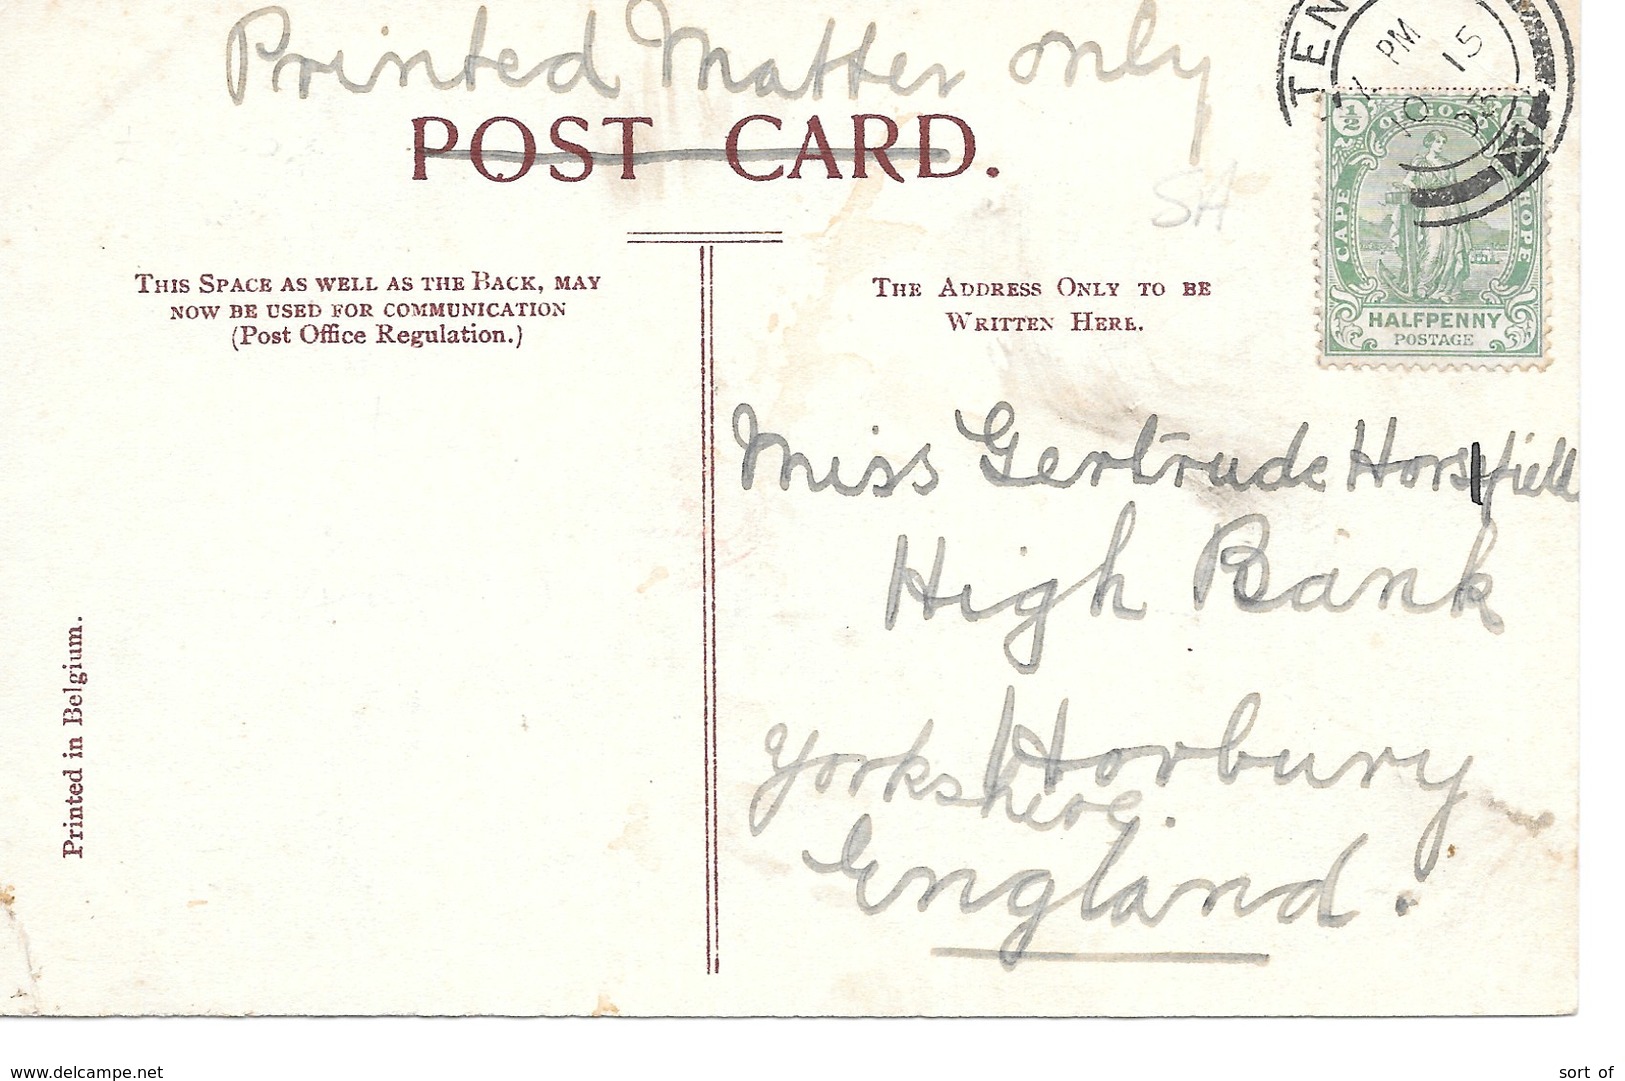 Printed Matter only
POST CARD.
THIS SPACE AS WELL AS THE BACK, MAY
NOW BE USED FOR COMMUNICATION
(Post Office Regulation.)
THE ADDRESS ONLY TO BE
WRITTEN HERE.
TEN
PM
15
½
OF GOOD
CAPE
HOPE
HALFPENNY
POSTAGE
SH
Miss Gertrude Horsfield
High Bank
Horbury
Yorkshire.
England.
Printed in Belgium.
www.delcampe.net
sort of